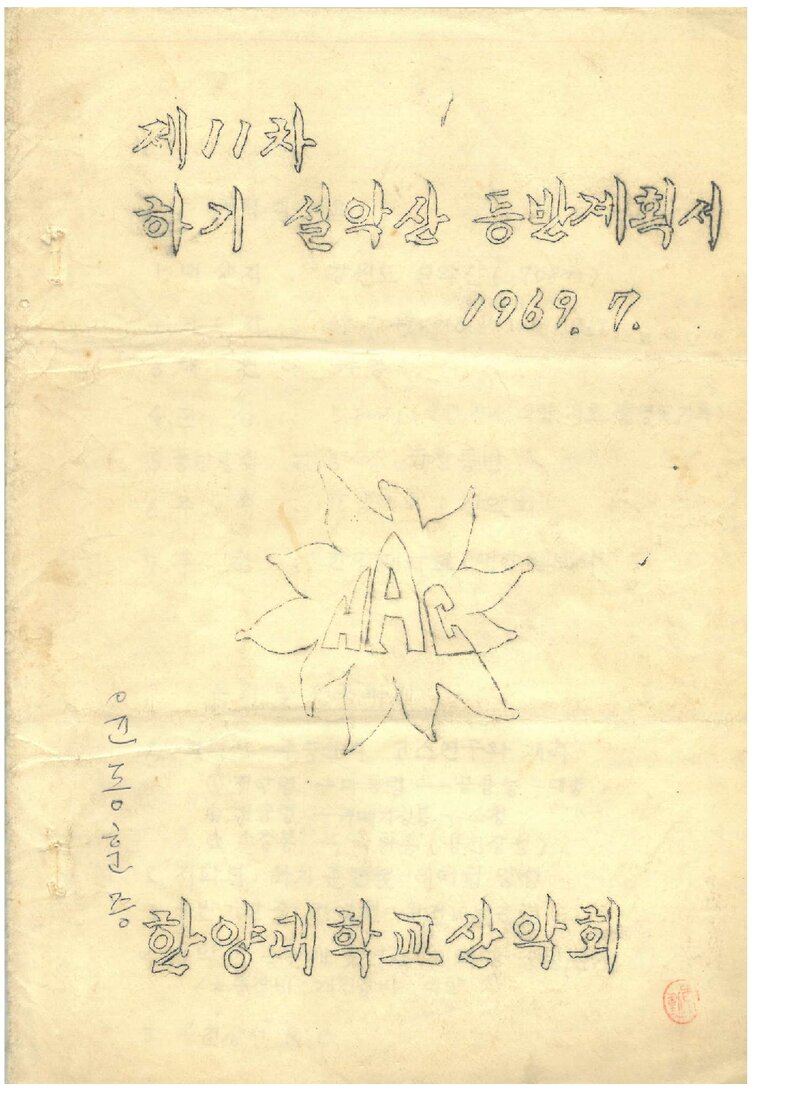 제11차
하기 설악산 등반계획서
1969. 7.
HAC
윤동훈 증
한양대학교산악회